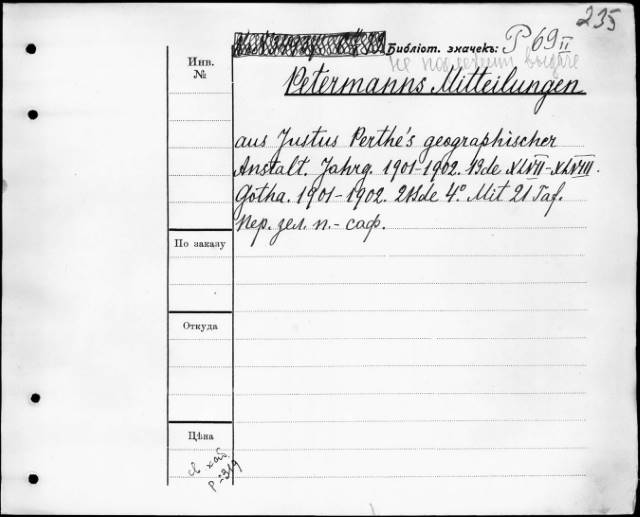 235
Библіот. значекъ: P 69 II
не подлежит выдаче
Petermanns Mitteilungen
aus Justus Perthe's geographischer
Anstalt. Jahrg. 1901-1902. Bde XLVII-XLVIII.
Gotha. 1901-1902. 2Bde 4º. Mit 21 Taf.
Пер. зел. п.- саф.
Инв.
№
По заказу
Откуда
Цѣна
P-319